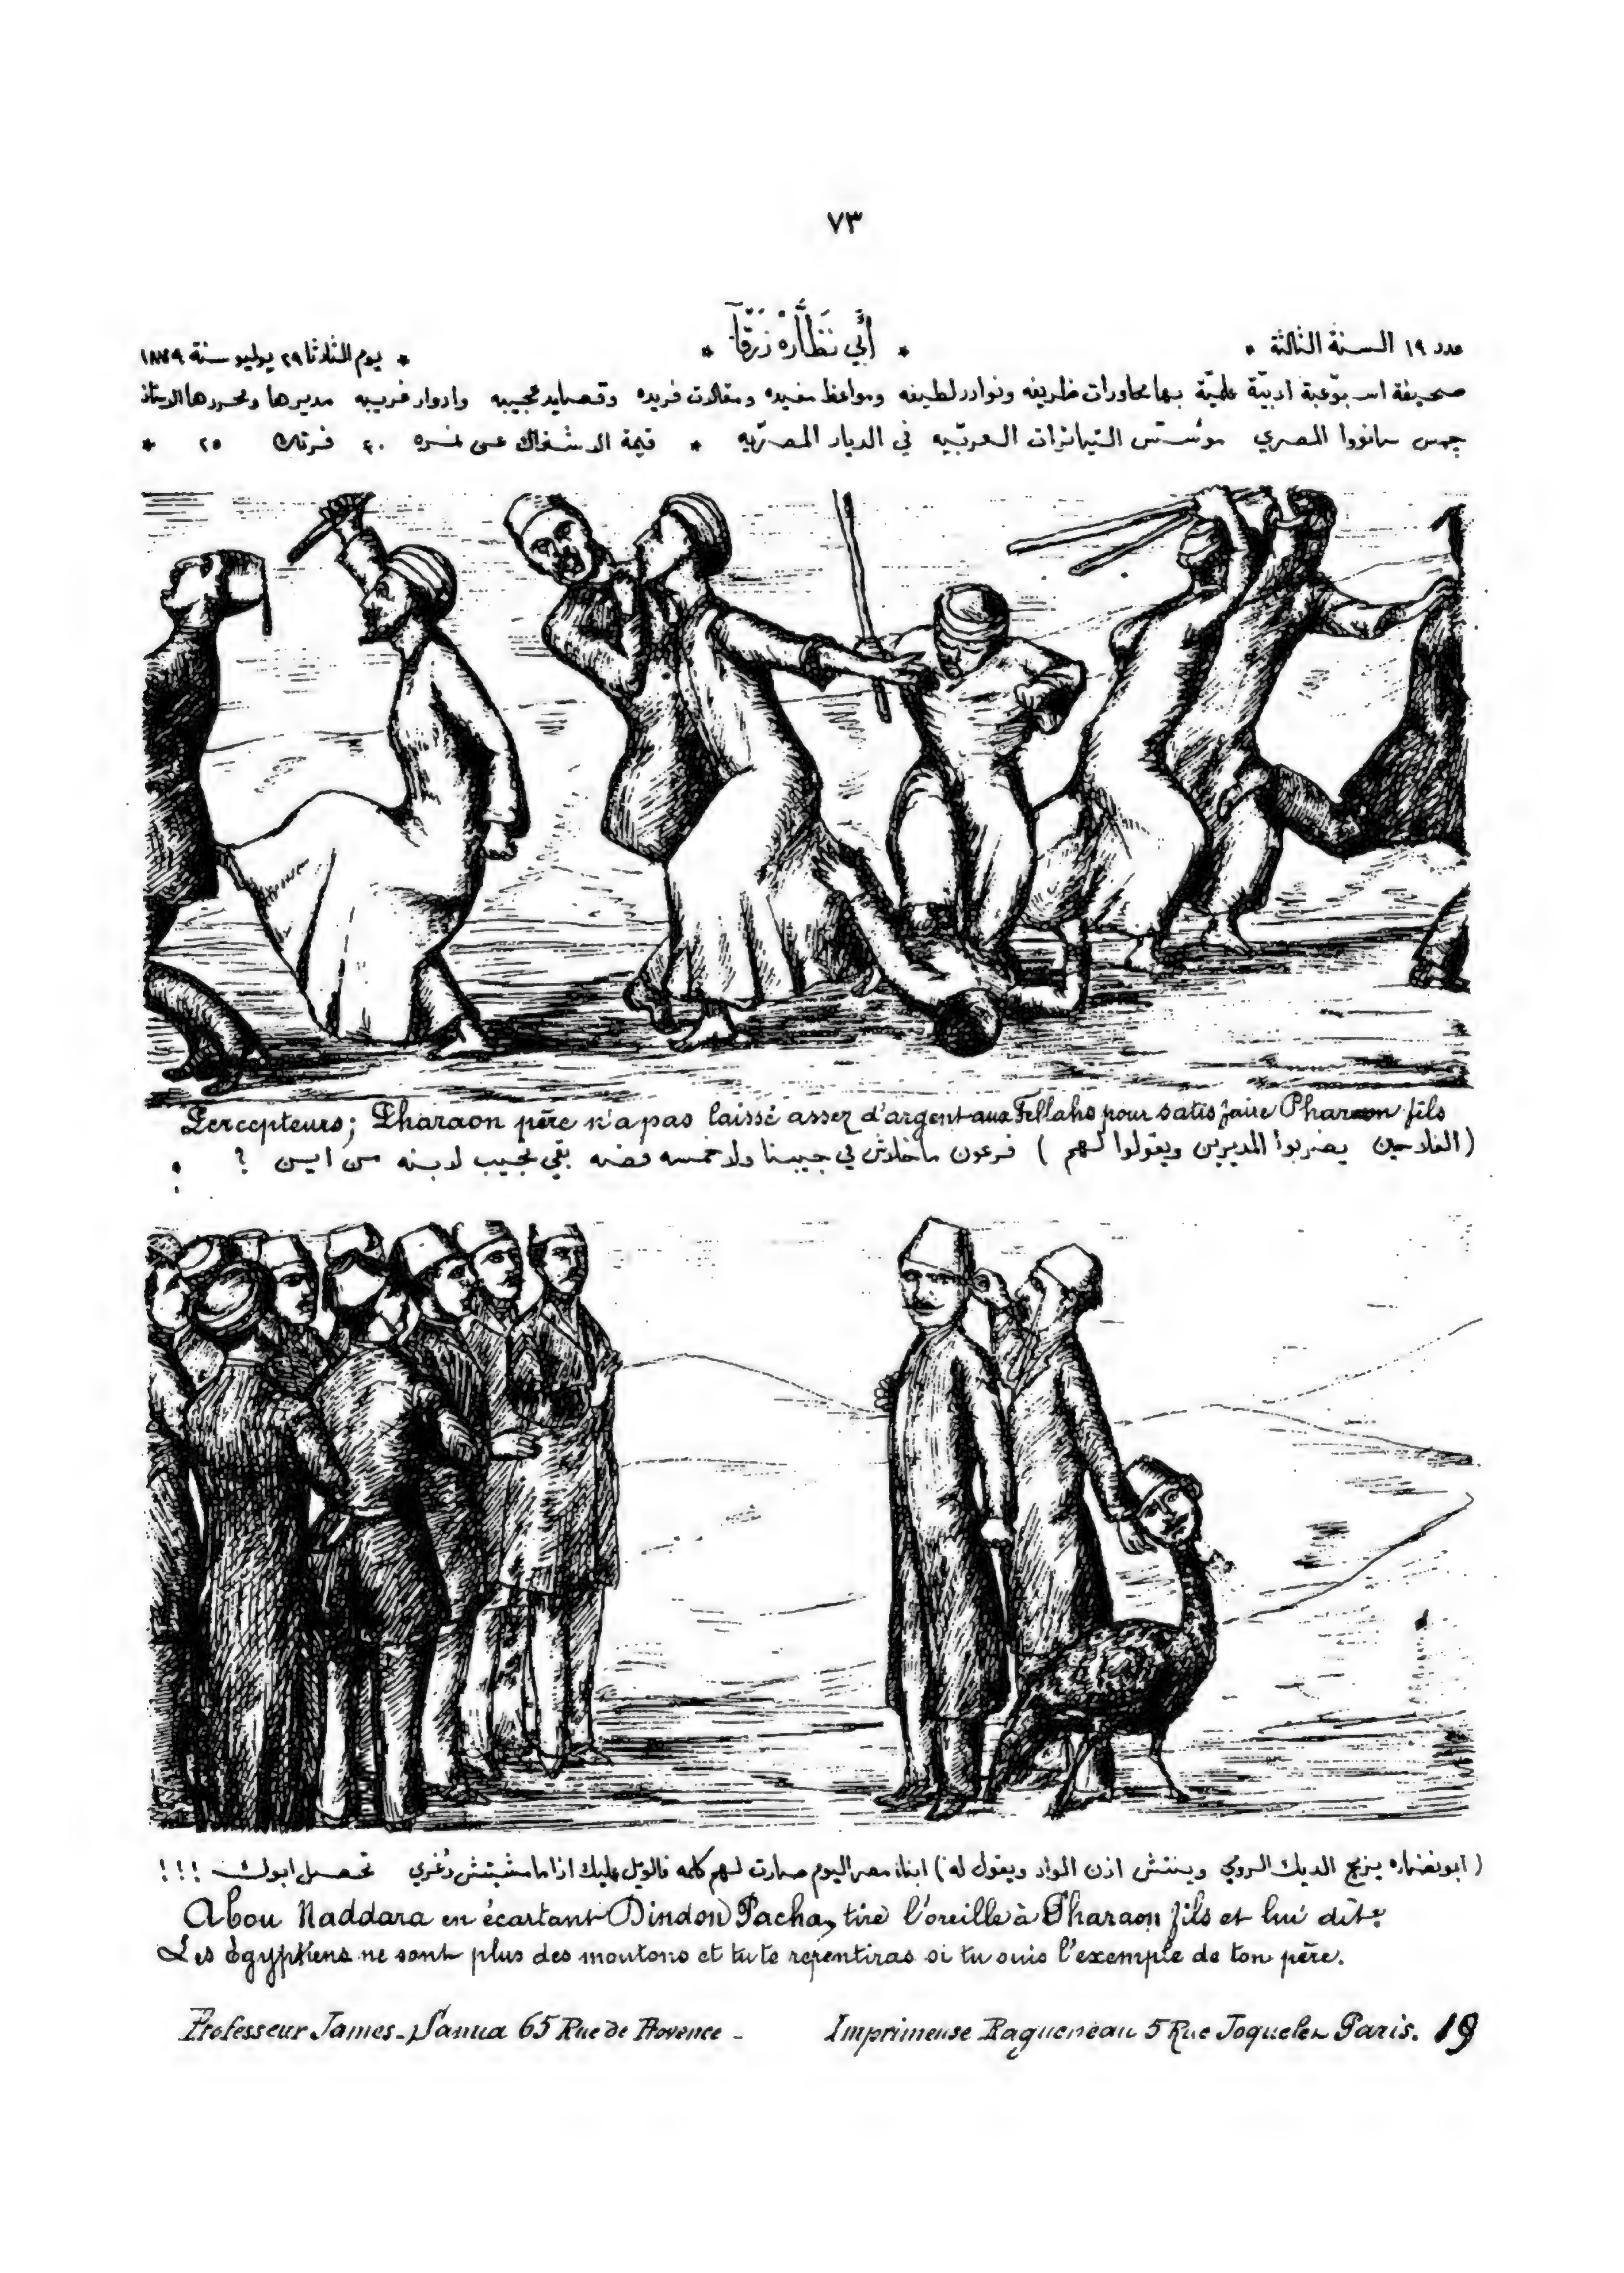 ٧٣
عدد ١٩ السنة الثالثة * * أَبِّي نَظَّارَهْ زَرْقَآ * * يوم الثلاثا ٢٩ يوليو سنة ١٨٧٩
صحيفة اسبوعية ادبيّة علميّة بها محاورات ظريفه ونوادر لطيفه ومواعظ مفيده ومقالات فريده وقصايد عجيبه وادوار غريبه مديرها ومحررها الاستاذ
جمس سانووا المصري مؤسّس التياترات العربيّه في الديار المصرّيه * قيمة الاشتراك عن نمره ٤٠ فرنك ٢٥ *
Percepteurs; Pharaon père n'a pas laissé assez d'argent aux Fellahs pour satisfaire Pharaon fils
(الفلاحين يضربوا المديرين ويقولوا لهم) فرعون ما خلاش في جيبنا ولا خمسه فضه بقى نجيب لابنه من اين ؟
(ابو نضاره يزيح الديك الرومي وينتش اذن الواد ويقول له) ابناء مصر اليوم صارت لهم كلمه فالويل عليك اذا ما مشيتش دُغري تحصل ابوك !!!
Abou Naddara en écartant Dindon Pacha, tire l'oreille à Pharaon fils et lui dit:
Les Égyptiens ne sont plus des moutons et tu te repentiras si tu suis l'exemple de ton père.
Professeur James Sanua 65 Rue de Provence - Imprimeuse Ragueneau 5 Rue Joquelet Paris. 19